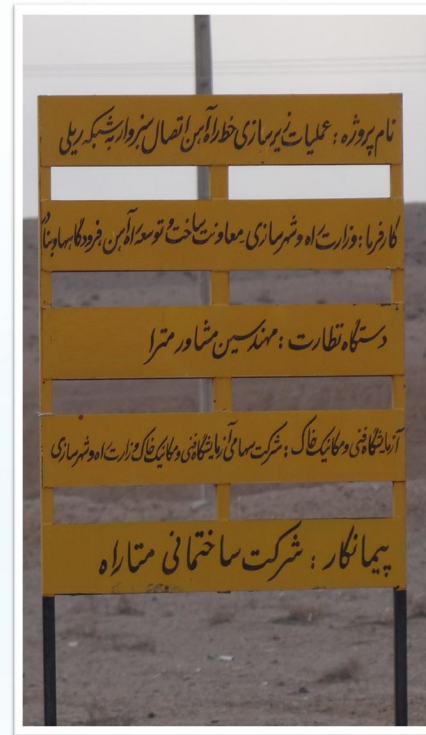 نام پروژه : عملیات زیرسازی خط راه آهن اتصال سبزوار به شبکه ریلی
کارفرما : وزارت راه و شهرسازی معاونت ساخت و توسعه راه آهن فرودگاهها و بنادر
دستگاه نظارت : مهندسین مشاور مترا
آزمایشگاه فنی و مکانیک خاک : شرکت سهامی آزمایشگاه فنی و مکانیک خاک وزارت راه و شهرسازی
پیمانکار : شرکت ساختمانی متاراه